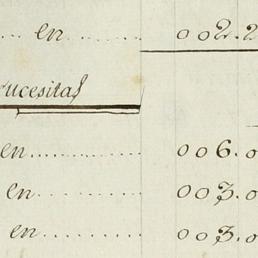 ... en ......... 002.2
rucesitas
en ............... 006.0
en ............. 003.0
en ............. 003.0